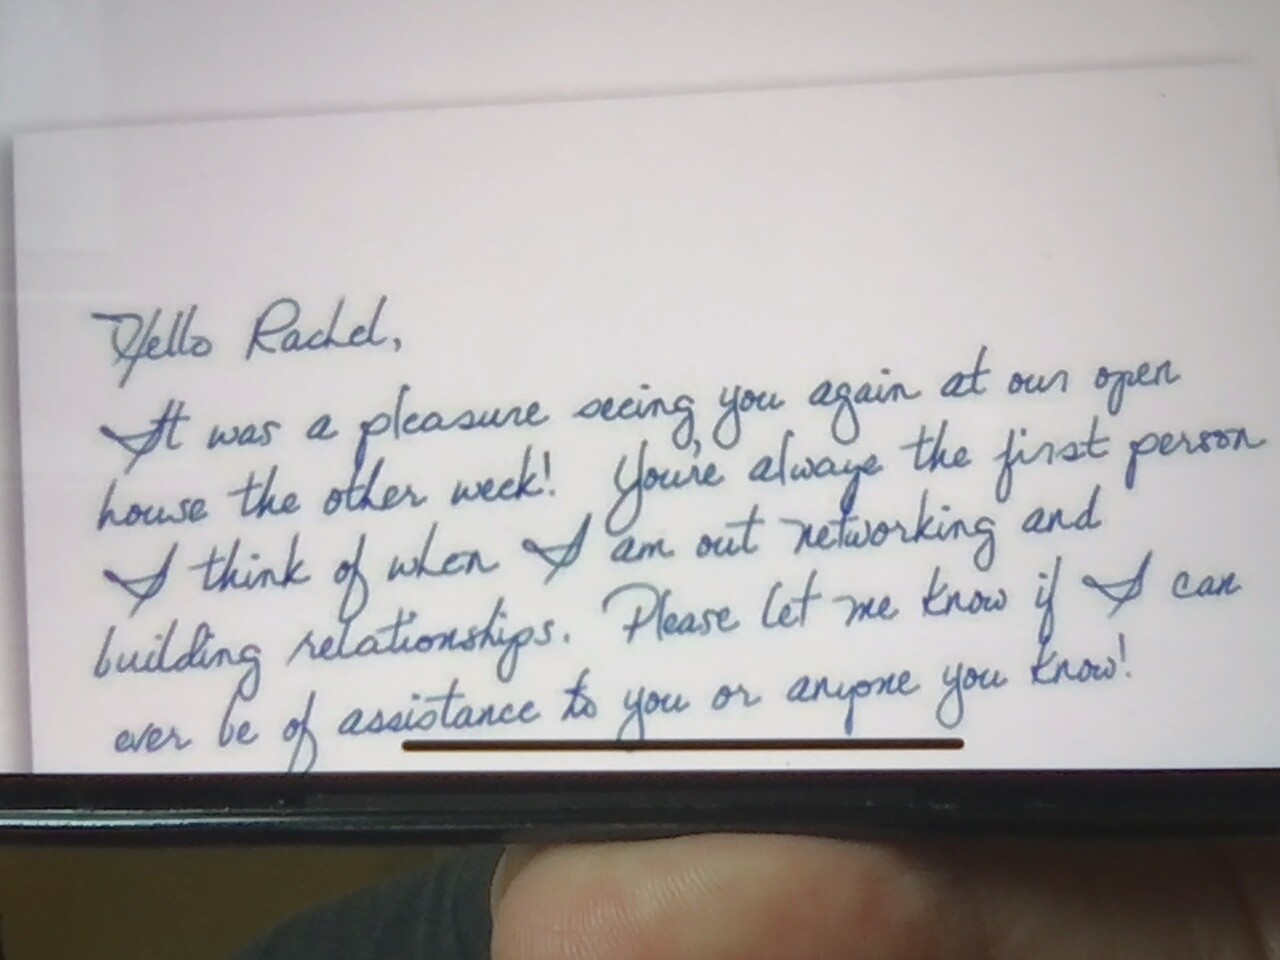 Hello Rachel,
It was a pleasure seeing you again at our open
house the other week! You're always the first person
I think of when I am out networking and
building relationships. Please let me know if I can
ever be of assistance to you or anyone you know!